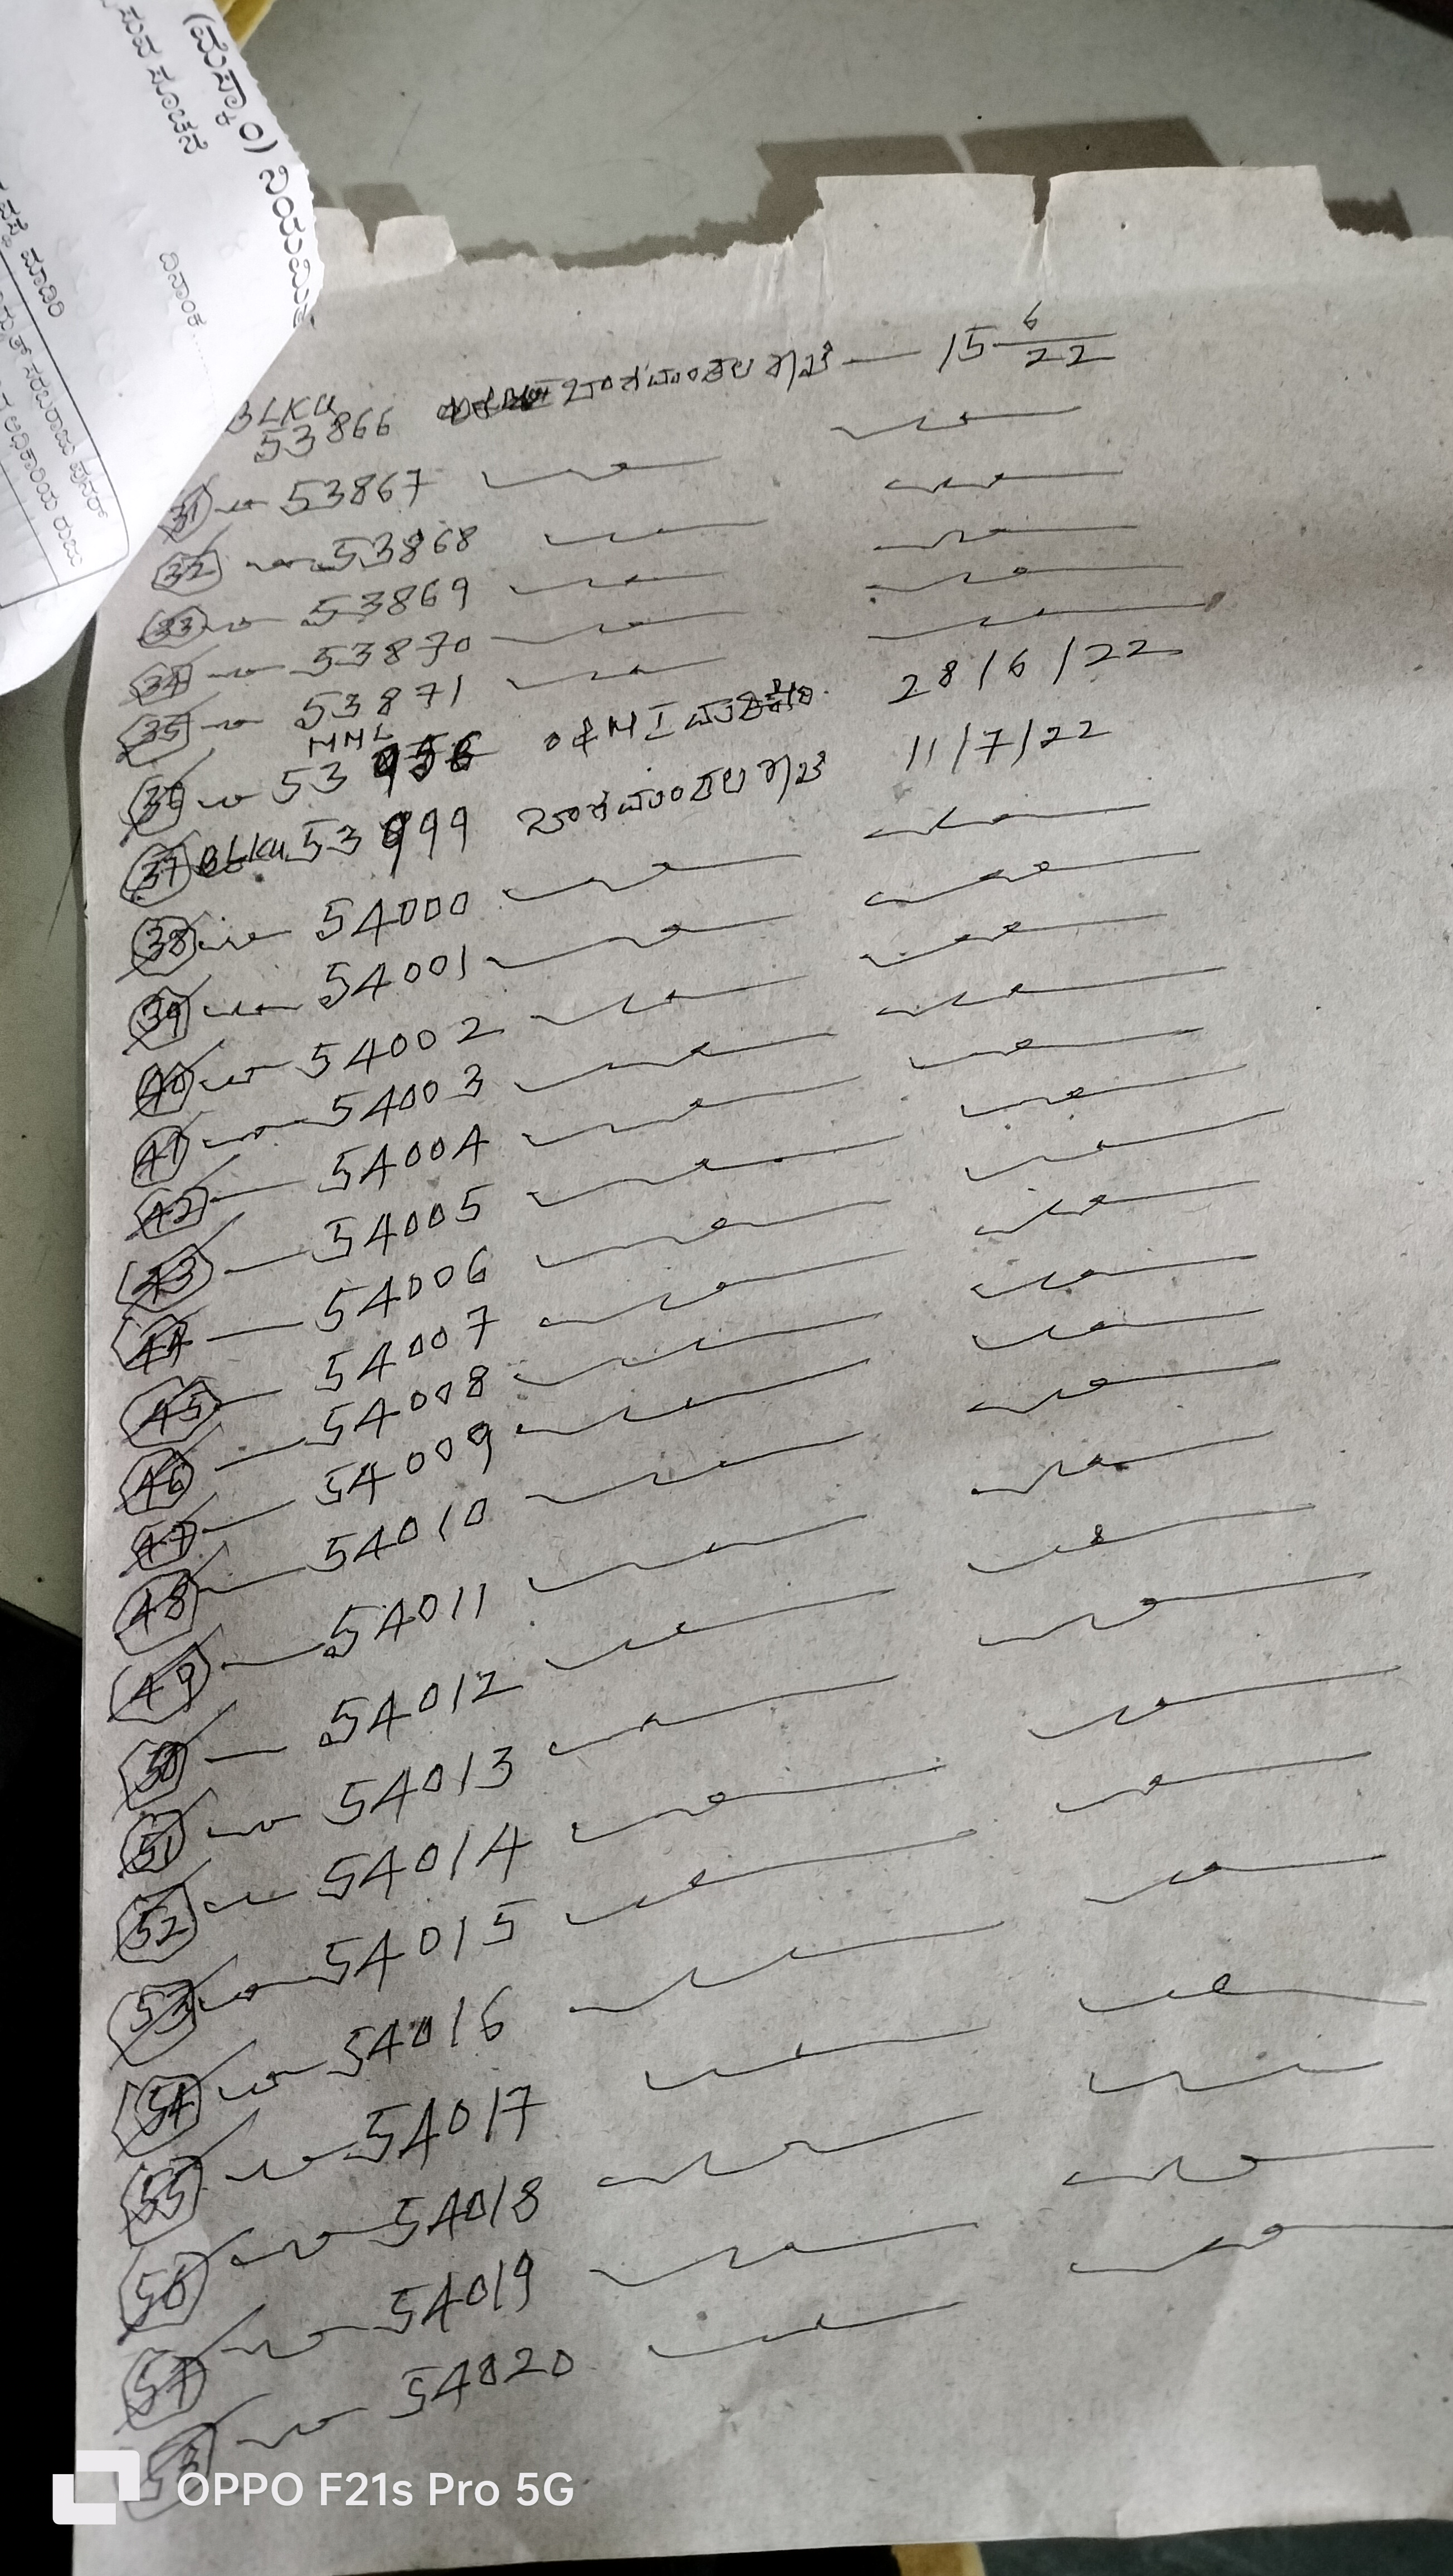 (ಮೆಸ್ಕಾಂ) ನಿಯಮಿತ
ದಿನಾಂಕ
BLKU 53866 15 6/22
31 53867
32 53868
33 53869
34 53870
35 53871
MNL
36 53956 28/6/22
37 BLKU 53999 11/7/22
38 54000
39 54001
40 54002
41 54003
42 54004
43 54005
44 54006
45 54007
46 54008
47 54009
48 54010
49 54011
50 54012
51 54013
52 54014
53 54015
54 54016
55 54017
56 54018
57 54019
54020
OPPO F21s Pro 5G